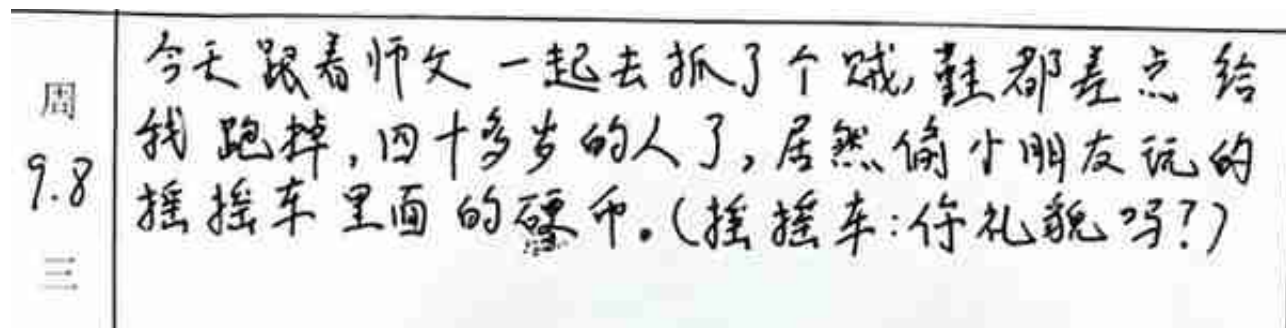 周
9.8
三
今天跟着师父一起去抓了个贼,鞋都差点给
我跑掉,四十多岁的人了,居然偷小朋友玩的
摇摇车里面的硬币。(摇摇车:你礼貌吗?)